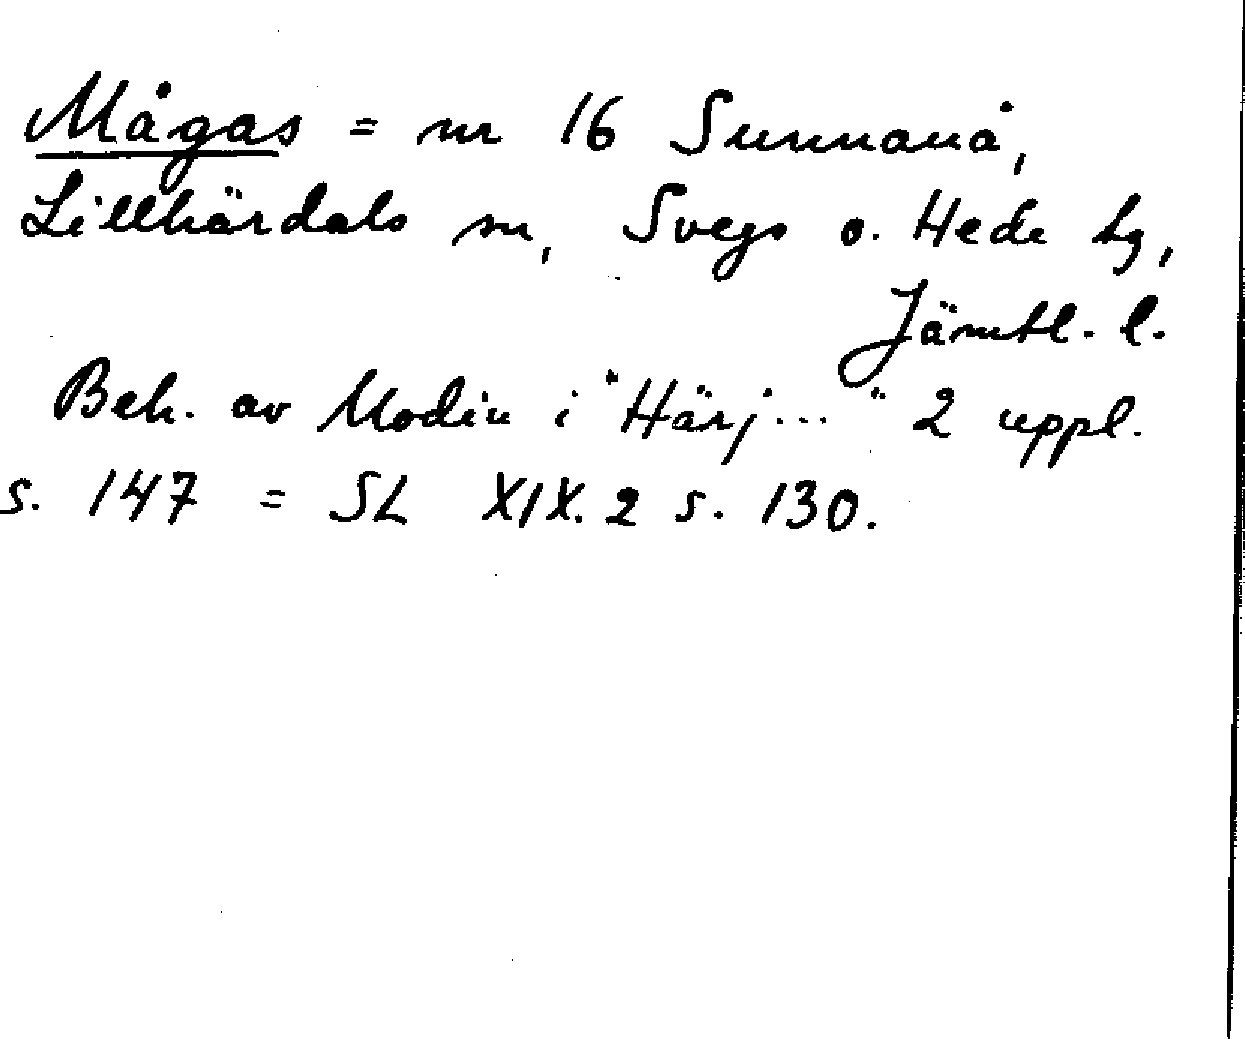 Mågas = nr 16 Sunnanå,
Lillhärdals sn, Svegs o. Hede tg,
Jämtl. l.
Beh. av Modin i "Härj..." 2 uppl.
s. 147 = SL XIX.2 s. 130.